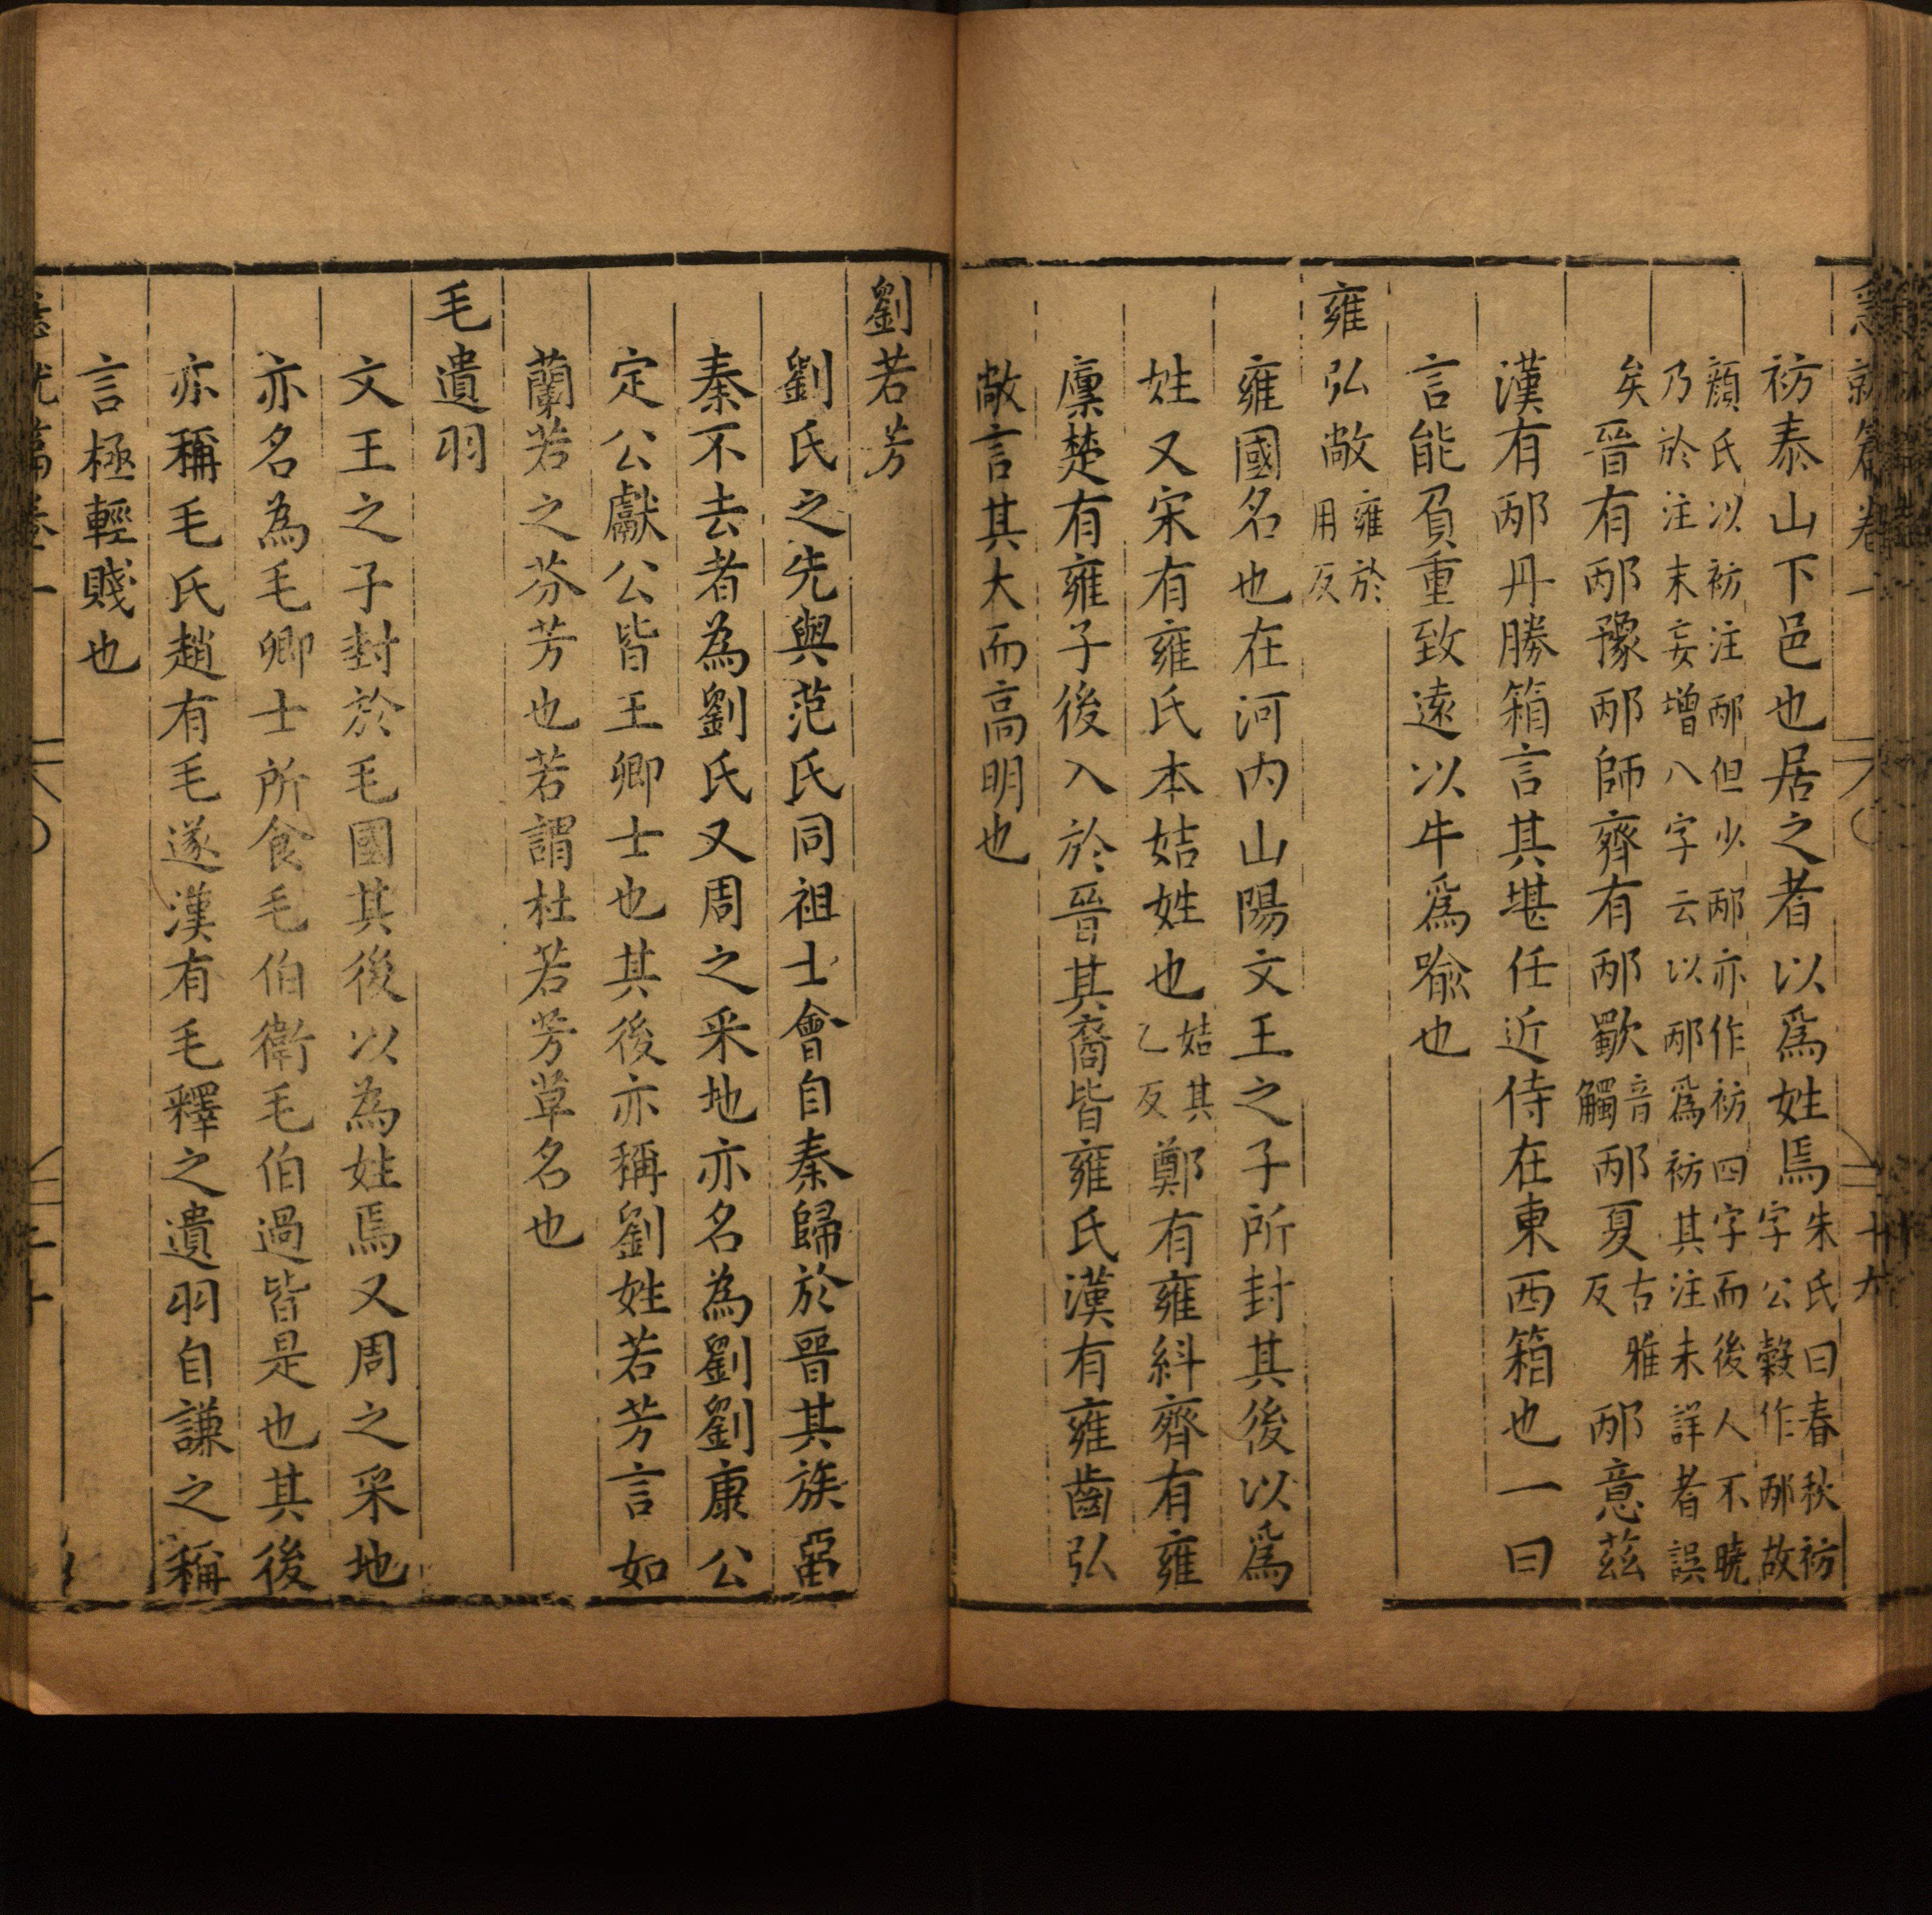 急就篇卷一
十九
祊泰山下邑也居之者以爲姓焉朱氏曰春秋祊字公穀作邴故
顏氏以祊注邴但少邴亦作祊四字而後人不曉
乃於注末妄增八字云以邴爲祊其注未詳者誤
矣晉有邴豫邴師齊有邴歜音觸邴夏古雅反邴意茲
漢有邴丹勝箱言其堪任近侍在東西箱也一曰
言能負重致遠以牛爲喻也
雍弘敞雍於用反
雍國名也在河內山陽文王之子所封其後以爲
姓又宋有雍氏本姞姓也姞其乙反鄭有雍糾齊有雍
廩楚有雍子後入於晉其裔皆雍氏漢有雍齒弘
敞言其大而高明也
劉若芳
劉氏之先與范氏同祖士會自秦歸於晉其族畱
秦不去者為劉氏又周之采地亦名為劉劉康公
定公獻公皆王卿士也其後亦稱劉姓若芳言如
蘭若之芬芳也若謂杜若芳草名也
毛遺羽
文王之子封於毛國其後以為姓焉又周之采地
亦名為毛卿士所食毛伯衛毛伯過皆是也其後
亦稱毛氏趙有毛遂漢有毛釋之遺羽自謙之稱
言極輕賤也
急就篇卷一
二十